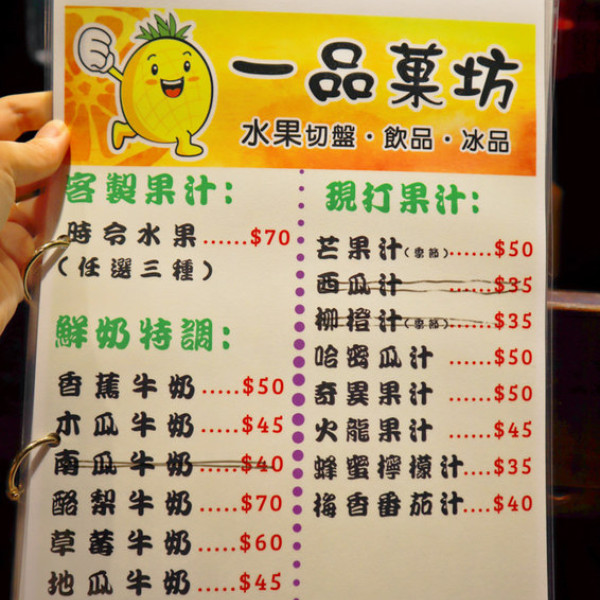 一品菓坊
水果切盤·飲品·冰品
客製果汁:
時令水果......$70
(任選三種)
鮮奶特調:
香蕉牛奶.....$50
木瓜牛奶.....$45
南瓜牛奶.....$40
酪梨牛奶.....$70
草莓牛奶.....$60
地瓜牛奶.....$45
現打果汁:
芒果汁(季節)......$50
西瓜汁......$35
柳橙汁(季節)......$35
哈密瓜汁......$50
奇異果汁......$50
火龍果汁......$45
蜂蜜檸檬汁....$35
梅香番茄汁....$40